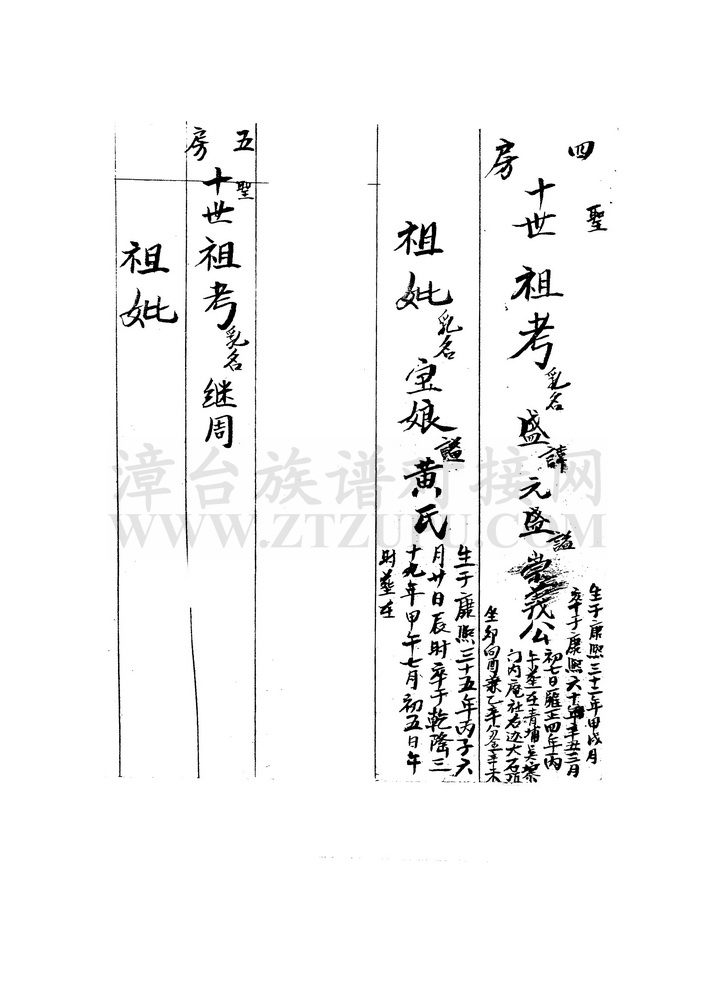 四房
聖
十世祖考乳名盛諱元盛謚崇義公
生于康熙三十三年甲戌月
卒于康熙六十年辛丑三月
初七日羅正四年丙
午葬在青埔吴寨
门内庵社右边大石
坐卯向酉兼乙辛分金辛未
祖妣乳名宝娘謚黄氏
生于康熙三十五年丙子六
月廿日辰时卒于乾隆三
十九年甲午七月初五日午
时葬在
五房
聖
十世祖考乳名继周
祖妣
漳台族谱对接网
WWW.ZTZUPU.COM